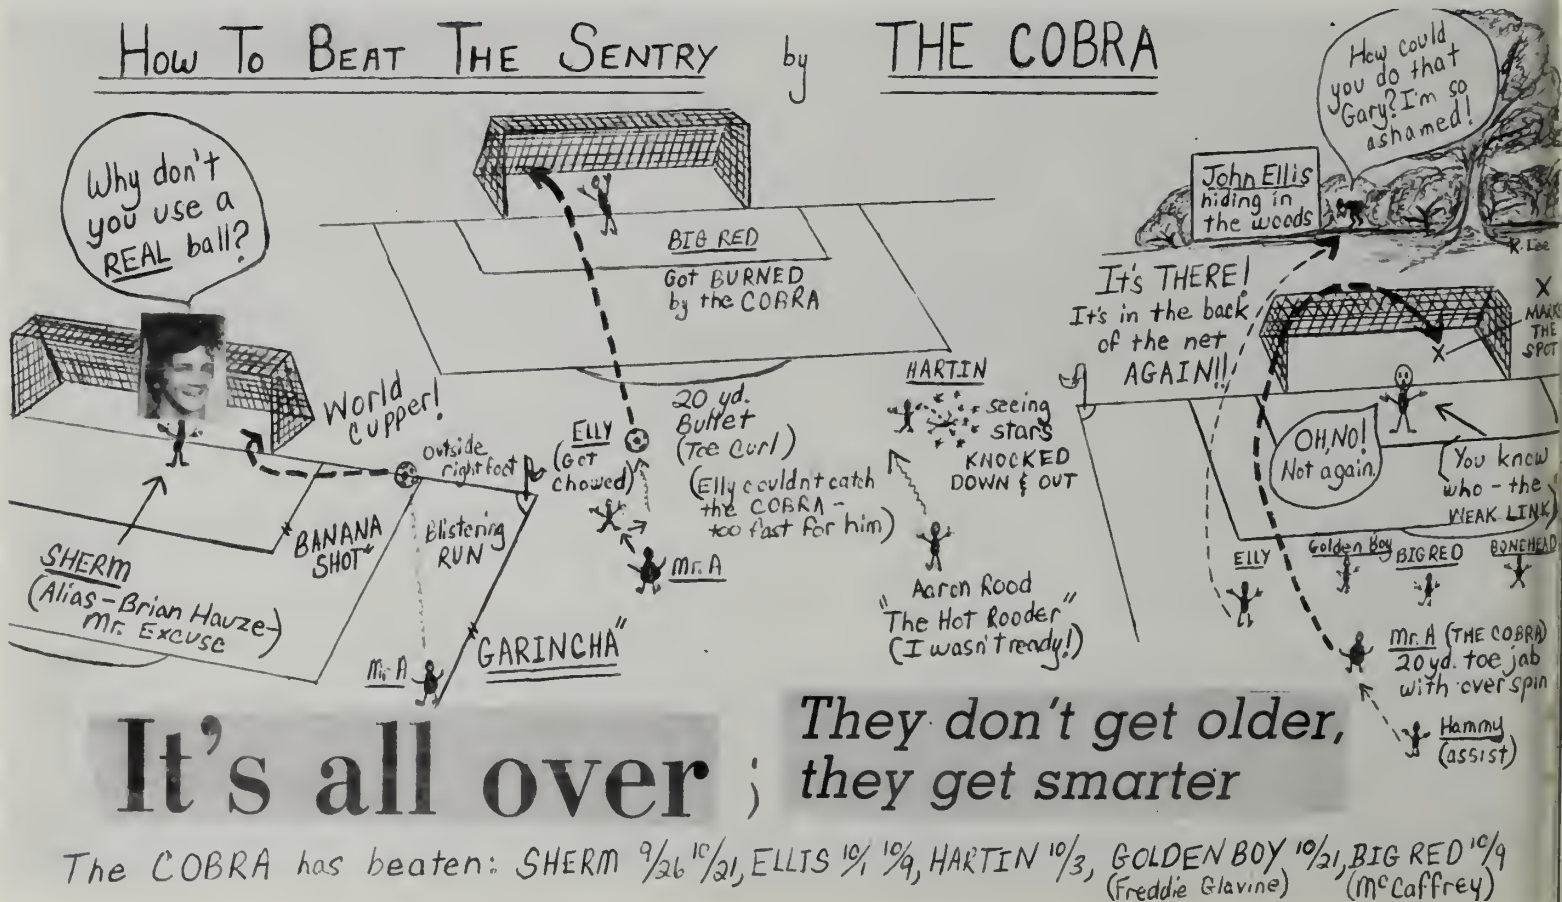 How To BEAT THE SENTRY by THE COBRA
Why don't
you use a
REAL ball?
World
CUPPER!
outside
right foot
"BANANA
SHOT"
Blistering
RUN
SHERM
(Alias-Brian Hauze-)
Mr. Excuse
Mr. A
"GARINCHA"
BIG RED
Got BURNED
by the COBRA
ELLY
(Got
chowed)
20 yd.
Bullet
(Toe Curl)
(Elly couldn't catch
the COBRA -
too fast for him)
Mr. A
HARTIN
seeing
stars
KNOCKED
DOWN & OUT
Aaron Rood
"The Hot Rooder"
(I wasn't ready!)
How could
you do that
Gary? I'm so
ashamed!
John Ellis
hiding in
the woods
R. Lee
It's THERE!
It's in the back
of the net
AGAIN!!
X
MARKS
THE
SPOT
X
OH, NO!
Not again.
(You know
who - the
WEAK LINK)
ELLY
Golden Boy
BIG RED
BONEHEAD
Mr. A (THE COBRA)
20 yd. toe jab
with over spin
Hammy
(assist)
It's all over ;
They don't get older,
they get smarter
The COBRA has beaten: SHERM 9/26 10/21, ELLIS 10/1 10/9, HARTIN 10/3, GOLDEN BOY 10/21, BIG RED 10/9
(Freddie Glavine) (McCaffrey)